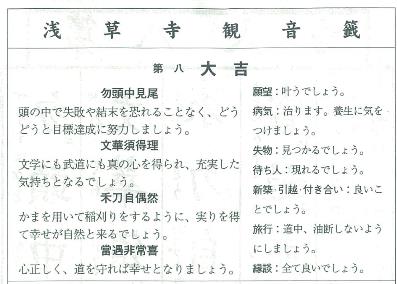 浅草寺観音籤
第八 大吉
勿頭中見尾
頭の中で失敗や結末を恐れることなく、どう
どうと目標達成に努力しましょう。
文華須得理
文学にも武道にも真の心を得られ、充実した
気持ちとなるでしょう。
禾刀自偶然
かまを用いて稲刈りをするように、実りを得
て幸せが自然と来るでしょう。
當遇非常喜
心正しく、道を守れば幸せとなりましょう。
願望：叶うでしょう。
病気：治ります。養生に気を
つけましょう。
失物：見つかるでしょう。
待ち人：現れるでしょう。
新築・引越・付き合い：良いこ
とでしょう。
旅行：道中、油断しないよう
にしましょう。
縁談：全て良いでしょう。